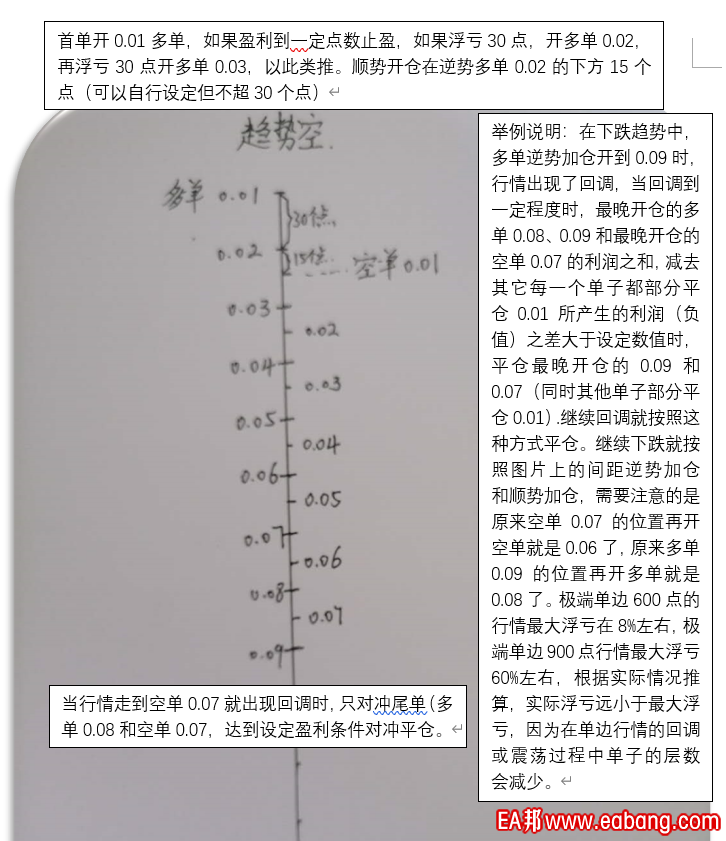 首单开 0.01 多单，如果盈利到一定点数止盈，如果浮亏 30 点，开多单 0.02，
再浮亏 30 点开多单 0.03，以此类推。顺势开仓在逆势多单 0.02 的下方 15 个
点（可以自行设定但不超 30 个点）
趋势空.
多单 0.01
30个点
0.02
15个点
空单 0.01
0.03
0.02
0.04
0.03
0.05
0.04
0.06
0.05
0.07
0.06
0.08
0.07
0.09
举例说明：在下跌趋势中，
多单逆势加仓开到 0.09 时，
行情出现了回调，当回调到
一定程度时，最晚开仓的多
单 0.08、0.09 和最晚开仓的
空单 0.07 的利润之和，减去
其它每一个单子都部分平
仓 0.01 所产生的利润（负
值）之差大于设定数值时，
平仓最晚开仓的 0.09 和
0.07（同时其他单子部分平
仓 0.01）.继续回调就按照这
种方式平仓。继续下跌就按
照图片上的间距逆势加仓
和顺势加仓，需要注意的是
原来空单 0.07 的位置再开
空单就是 0.06 了，原来多单
0.09 的位置再开多单就是
0.08 了。极端单边 600 点的
行情最大浮亏在 8%左右，极
端单边 900 点行情最大浮亏
60%左右，根据实际情况推
算，实际浮亏远小于最大浮
亏，因为在单边行情的回调
或震荡过程中单子的层数
会减少。
当行情走到空单 0.07 就出现回调时，只对冲尾单（多
单 0.08 和空单 0.07，达到设定盈利条件对冲平仓。
EA邦 www.eabang.com